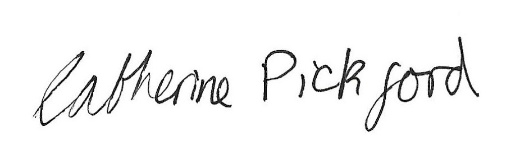 Catherine Pickford